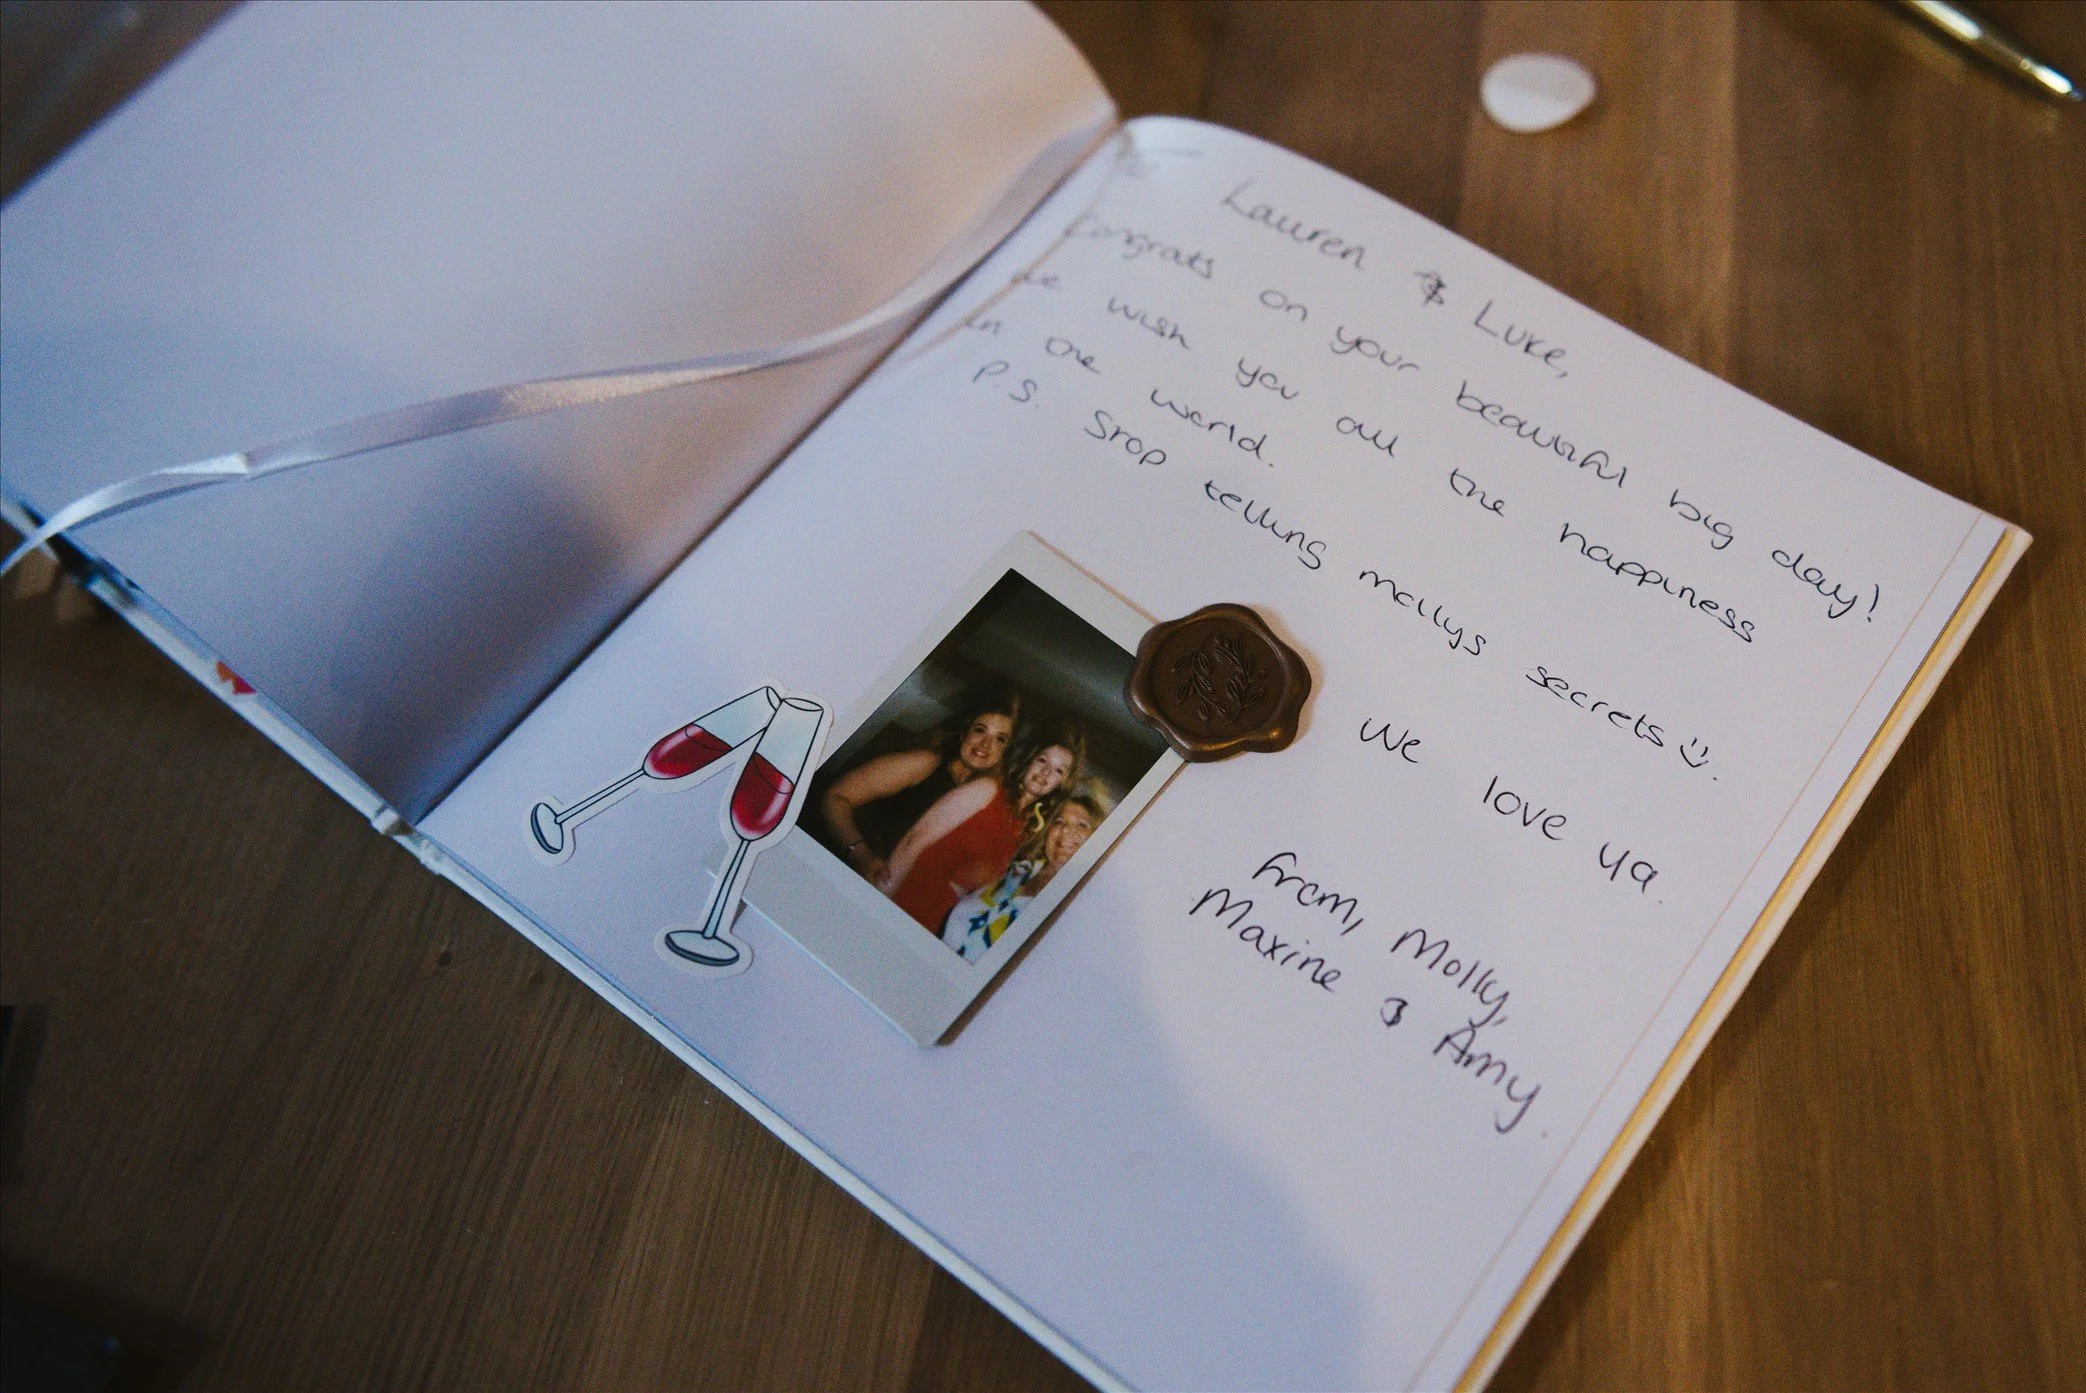 To Lauren & Luke,
Congrats on your beautiful big day!
We wish you all the happiness
in the world.
P.S. Stop telling mollys secrets :).
We love ya
From, Molly,
Maxine & Amy.